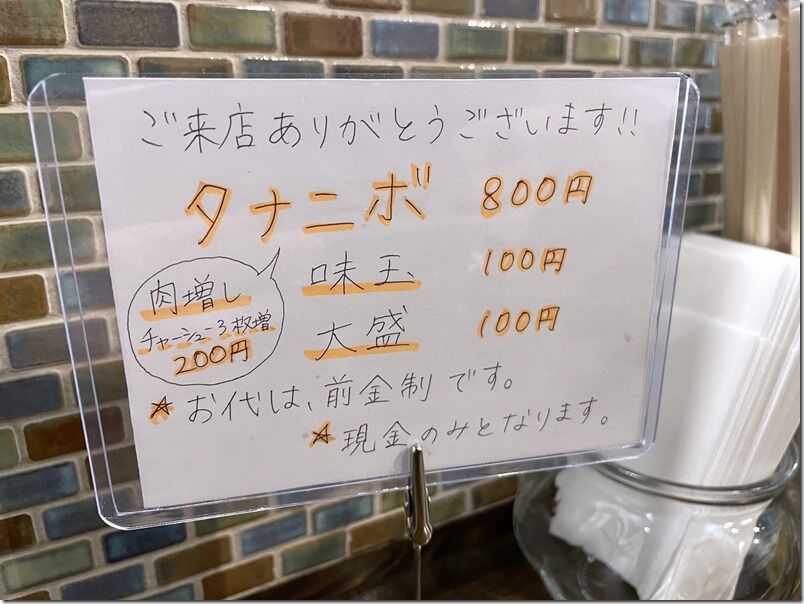 ご来店ありがとうございます!!
タナニボ 800円
味玉 100円
大盛 100円
肉増し
チャーシュー3枚増
200円
☆お代は、前金制です。
☆現金のみとなります。